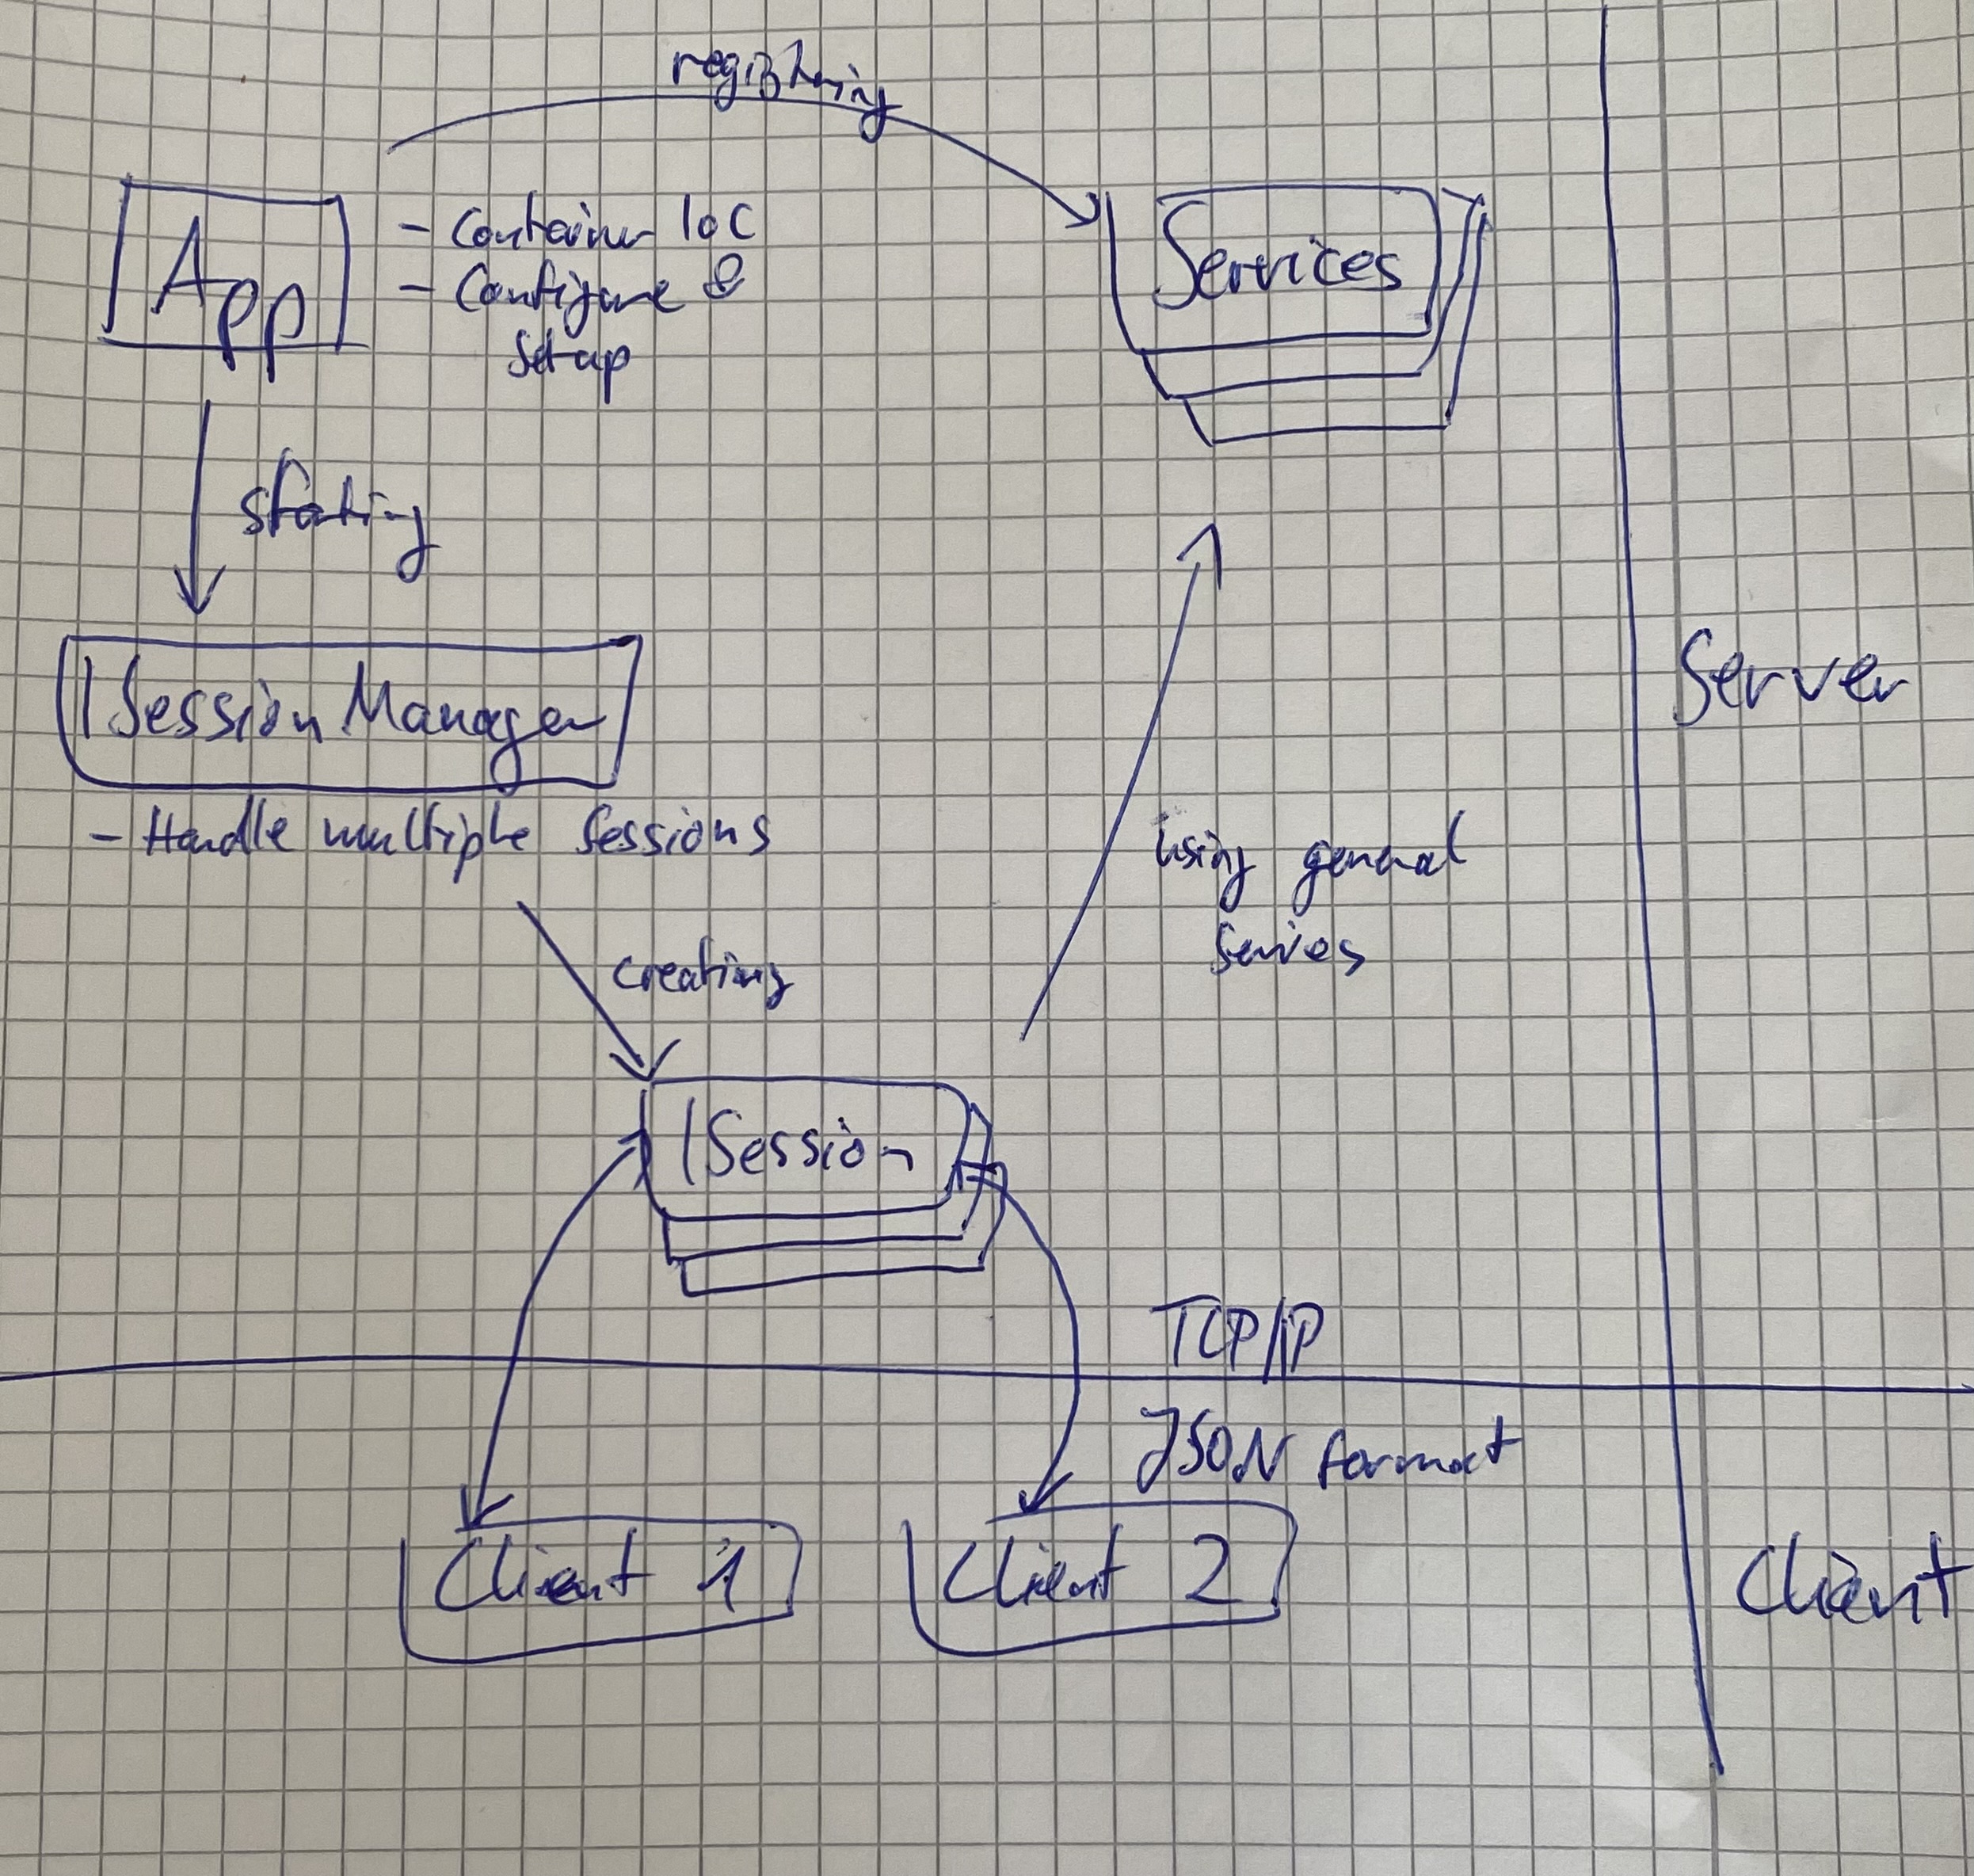 registering
App
- Container IoC
- Configure &
Setup
Services
starting
ISessionManager
- Handle multiple Sessions
Server
using general
Servies
creating
ISession
TCP/IP
JSON format
Client 1
Client 2
Client